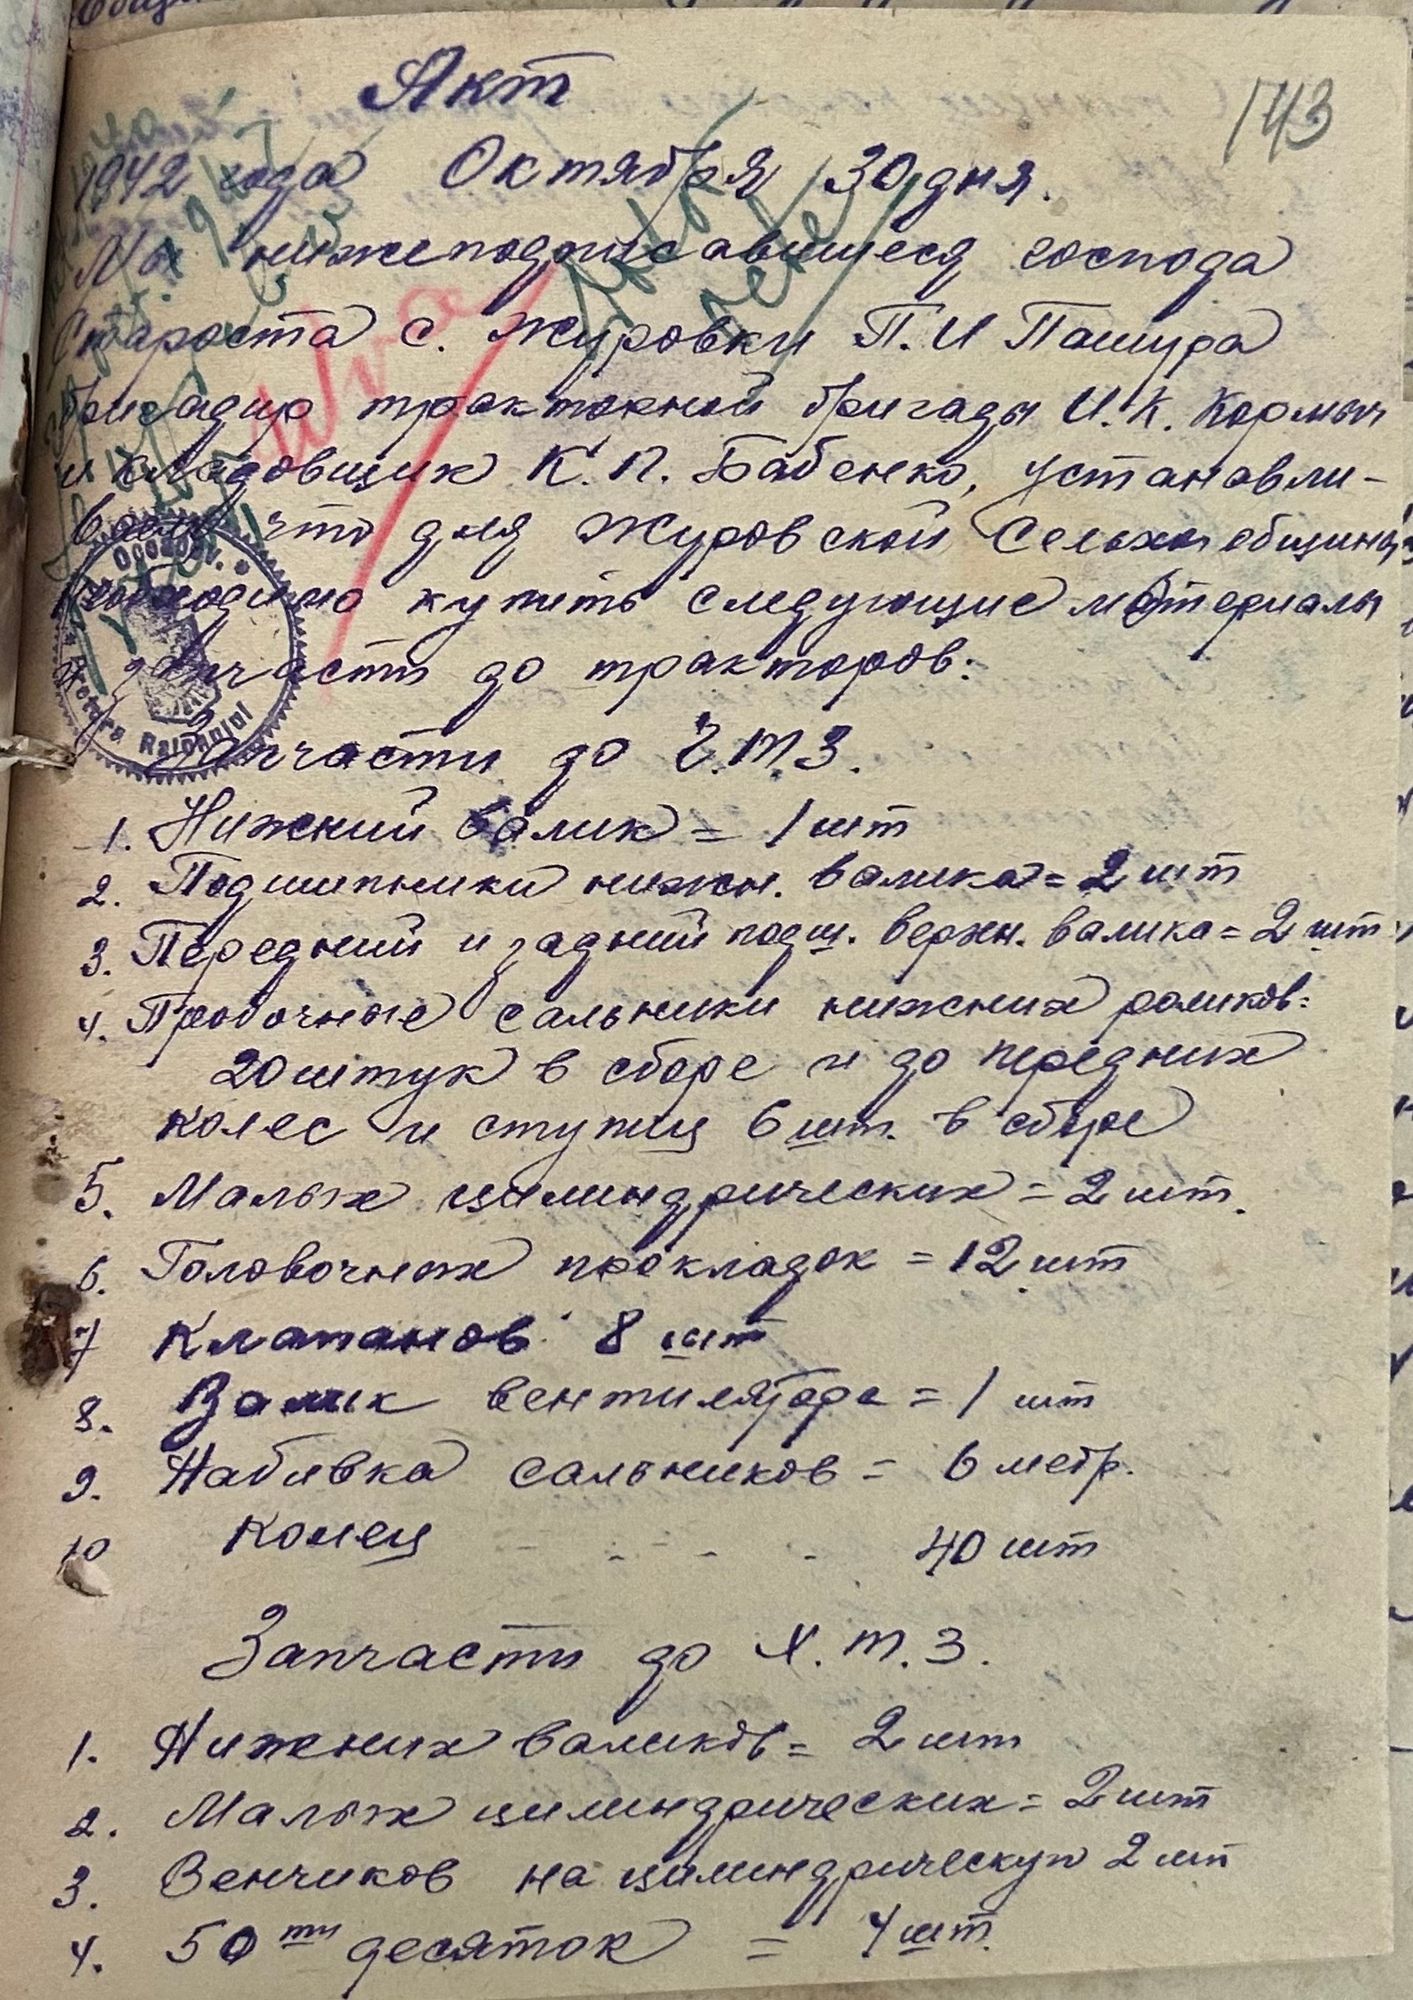 143
Акт
1942 года Октября 30 дня.
Мы нижеподписавшиеся господа
Староста с. Журовки П. И Пашура
бригадир тракторной бригады И. К. Кормыч
и кладовщик К. П. Бабенко, установли-
что для Журовской Сельхоз общины
необходимо купить следующие материалы
и запчасти до тракторов:
Pretura Raionului
Запчасти до Ч.Т.З.
1. Нижний валик = 1 шт
2. Подшипники нижн. валика = 2 шт
3. Передний и задний подш. верхн. валика = 2 шт
4. Пробочные сальники нижних роликов =
20 штук в сборе и до передних
колес и ступиц 6 шт. в сборе
5. Малых цилиндрических = 2 шт.
6. Головочных прокладок = 12 шт
7 Клапанов 8 шт
8. Валик вентилятора = 1 шт
9. Набивка сальников = 6 метр.
10 Колец - - - - 40 шт
Запчасти до Х. Т. З.
1. Нижних валиков = 2 шт
2. Малых цилиндрических = 2 шт
3. Венчиков на цилиндрическую 2 шт
4. 50ти десяток = 4 шт.